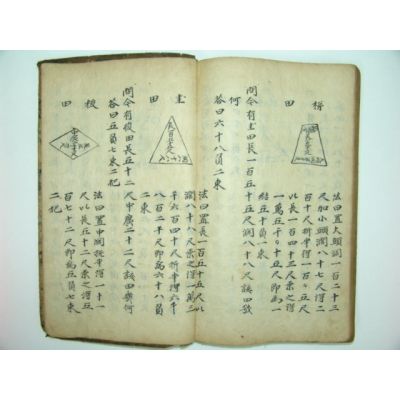 梯田
法曰置大頭闊一百二十三
尺加小頭闊八十七尺得二
百十尺折半得一百〇五尺
以長一百四十三尺乘之得
一萬五千〇十五尺即爲一
結五十負一束
問今有圭田長一百五十五尺濶八十八尺該田数
何
答曰六十八負二束
圭田
法曰置長一百五十五尺以
濶八十八尺乘之得一萬三
千六百四十尺折半得六千
八百二十尺即爲六十八負
二束
問今有梭田長五十二
尺中廣二十二尺該田與何
答曰五負七束二把
梭田
法曰置中濶折半得一十一
尺以長五十二尺乘之得五
百七十二尺即爲五負七束
二把